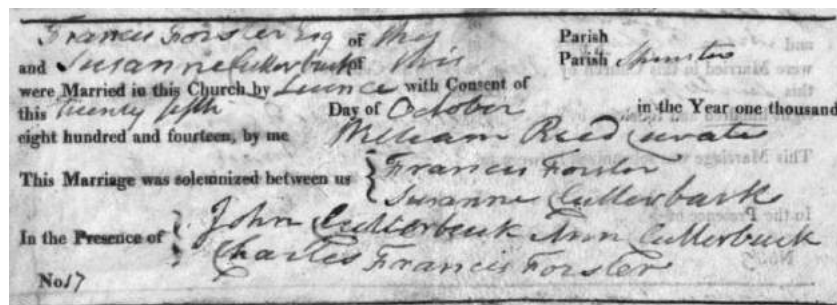 Francis Forster Esq of this Parish
and Susanne Cutterbuck of this Parish Spinster
were Married in this Church by Licence with Consent of
this twenty fifth Day of October in the Year one thousand
eight hundred and fourteen, by me William Reed Curate
This Marriage was solemnized between us { Francis Forster
Susanne Cutterbuck
In the Presence of { John Cutterbuck Ann Cutterbuck
Charles Francis Forster
No 17